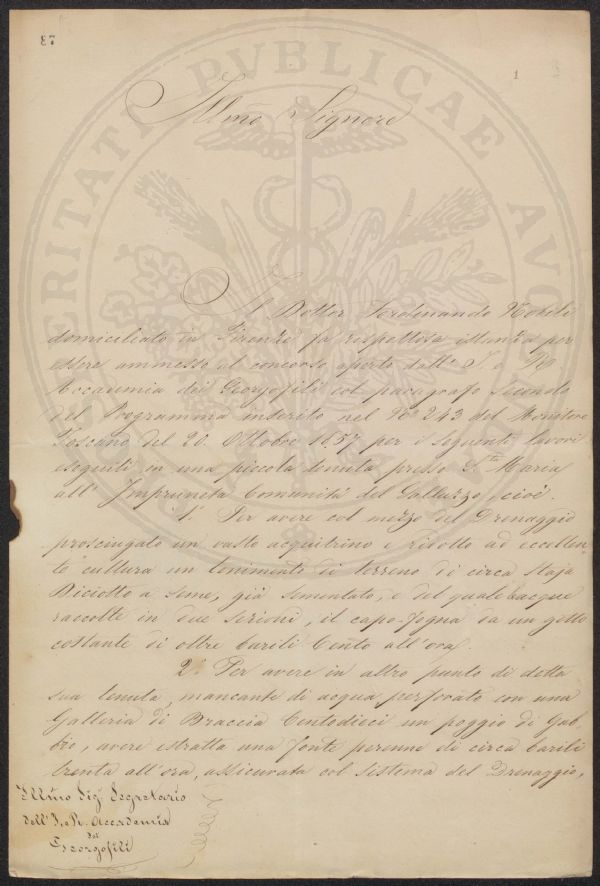 87
1
Illmo Signore
Il Dottor Ferdinando Nobili
domiciliato in Firenze fa rispettosa istanza per
essere ammesso al concorso aperto dall' I. e R.
Accademia dei Georgofili col paragrafo secondo
del Programma inserito nel No. 243 del Monitore
Toscano del 20. Ottobre 1857 per i seguenti lavori
eseguiti in una piccola tenuta presso Sta Maria
all' Impruneta Comunità del Galluzzo, cioè.
1. Per avere col mezzo del Drenaggio
prosciugato un vasto acquitrino e ridotto ad eccellen-
te cultura un tenimento di terreno di circa Staja
Diciotto a seme, già sementato, e del quale le acque
raccolte in due sezioni, il capo-fogna da un getto
costante di oltre barili Cento all'ora.
2. Per avere in altro punto di detta
sua tenuta, mancante di acqua, perforato con una
Galleria di Braccia Centodieci un poggio di Gab-
bro, avere estratta una fonte perenne di circa barili
trenta all'ora, assicurata col sistema del Drenaggio,
Illmo Sig. Segretario
dell' I. e R. Accademia
dei
Georgofili
PVBLICAE